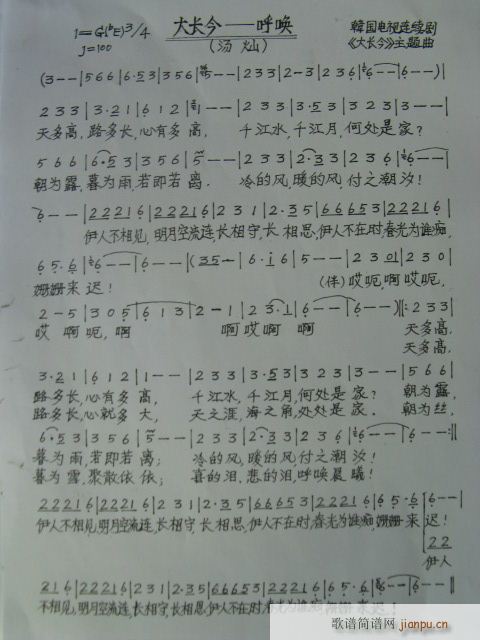 大长今——呼唤
1=G(♭E)3/4
韩国电视连续剧
J=100
(汤灿)
《大长今》主题曲
(3--|566|6·53|356|5--|233|2-3|236|6--|6--)|
233|3·21|612|1--|233|233|3·53|323|3--|
天多高,路多长,心有多高, 千江水,千江月,何处是家?
566|6·53|356|5--|233|2·33|236|6--|
朝为露,暮为雨,若即若离. 冷的风,暖的风付之潮汐!
6--|22216|22216|231|2·35|66653|22216|
伊人不相见,明月空流连,长相守,长相思,伊人不在时,春光为谁痴,
65·6|6--|6--|(35--|6·i6|5--|--|2301|230|
姗姗来迟! (伴)哎呃啊哎呃,
2-5|305|613|2-1|23·1|6--|6--)||:233|
哎 啊呃,啊 啊哎啊 啊 天多高,
天多高,
3·21|612|1--|233|233|3·53|323|3--|566|
路多长,心有多高, 千江水,千江月,何处是家? 朝为露,
路多长,心就多大, 天之涯,海之角,处处是家. 朝为丝,
6·53|356|5--|233|2·33|236|6--|6--:||
暮为雨,若即若离; 冷的风,暖的风付之潮汐!
暮为雪,聚散依依; 喜的泪,悲的泪,呼唤晨曦!
22216|22216|231|2·35|66653|22216|65·6|6--|
伊人不相见,明月空流连,长相守,长相思,伊人不在时,春光为谁痴,姗姗来迟!
22
伊人
216|22216|231|2·35|66653|22216|65·6|6--|6--||
不相见,明月空流连,长相守,长相思,伊人不在时,春光为谁痴,姗姗来迟!
歌谱简谱网 jianpu.cn